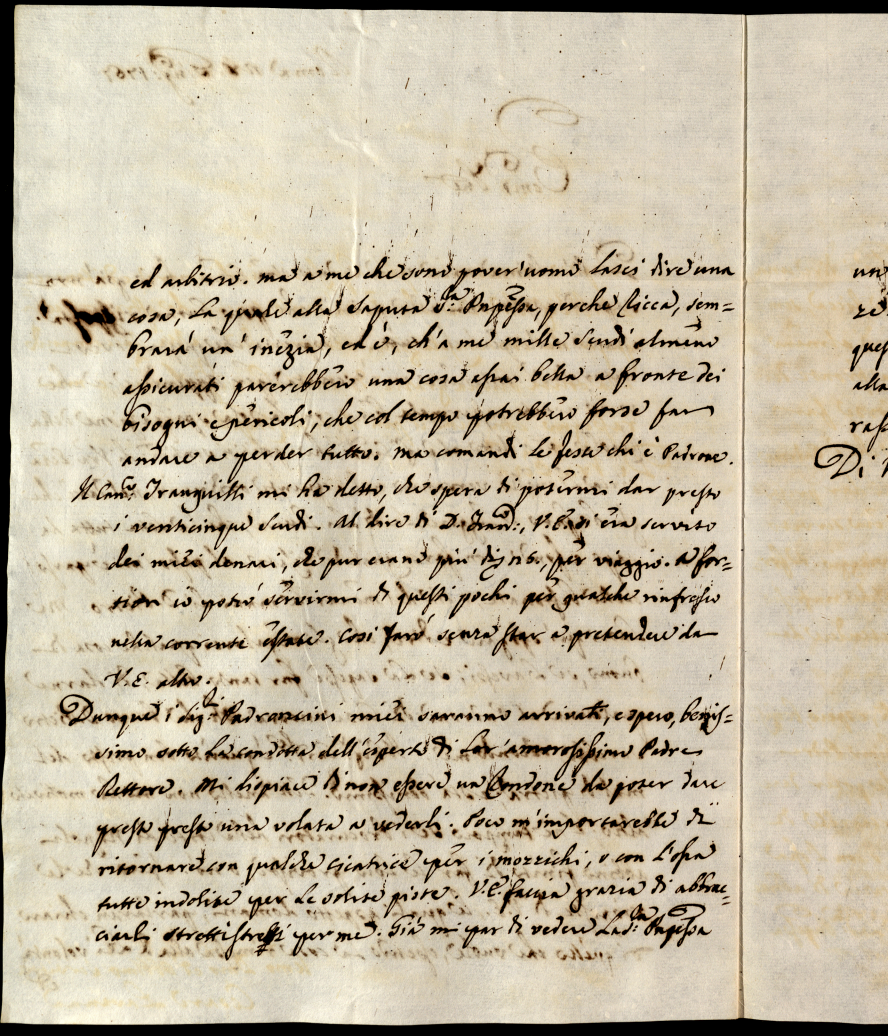 ed arbitrio. ma a me che sono pover'uomo lasci dire una
cosa, la quale alla saputa S.ra Papessa, perche ricca, sem=
brará un' inezia, ed é, ch'a me mille scudi almeno
assicurati parerebbero una cosa assai bella a fronte dei
bisogni e pericoli, che col tempo potrebbero forse far
andare a perder tutto. ma comandi le feste chi é Padrone.
Il Can.co Tranquilli mi ha detto, che spera di potermi dar presto
i venticinque scudi. Al dire di D. Fran.co, V.E. si era servito
dei miei denari, che pur erano piú di, per viaggio. a for=
tiori io potró servirmi di questi pochi per qualche rinfresco
nella corrente estate. Cosi faró senza star a pretendere da
V.E. altro.
Dunque i Sig.ri Padroncini miei saranno arrivati, e spero, benis=
simo sotto la condotta dell'esperto di lor' amorosissimo Padre
Rettore. Mi dispiace di non essere un Rondone da poter dare
presto presto una volata a vederli. Poco m'importarebbe di
ritornare con qualche cicatrice per i mozzichi, o con l'ossa
tutte indolite per le solite piste. V.E. faccia grazia di abbrac=
ciarli stretti stretti per me. Giá mi par di vedere la S.ra Papessa
un
ze
ques
alla
rass
Di